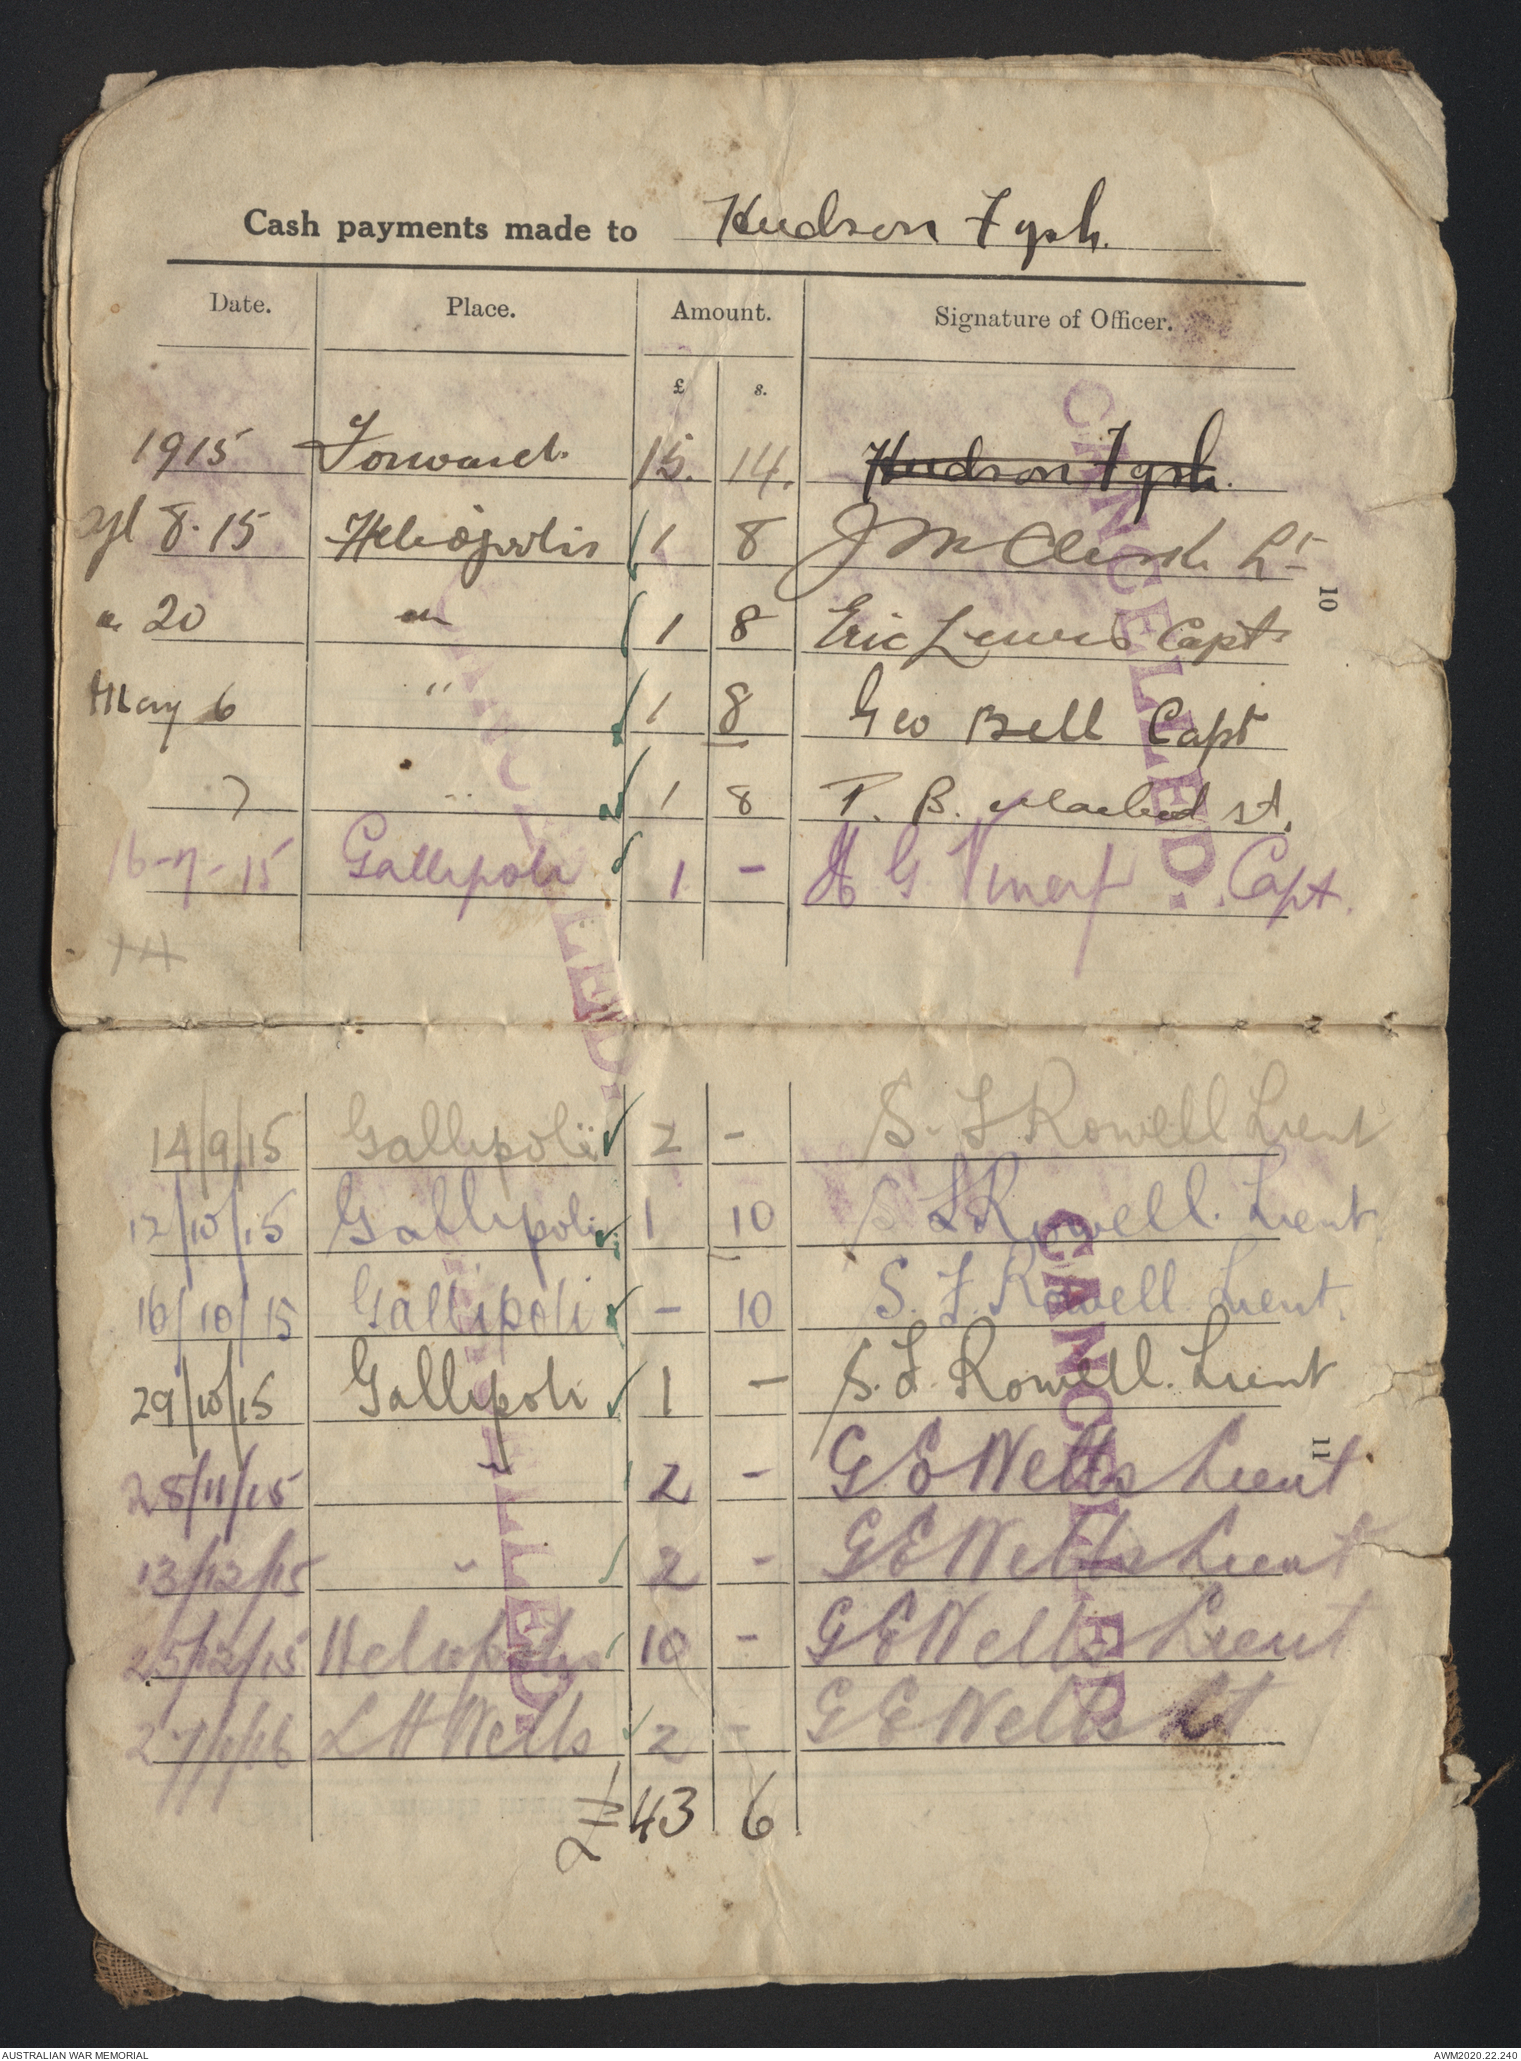 Cash payments made to Hudson Fysh.
Date. Place. Amount. Signature of Officer.
£ s.
1915 Forward. 15. 14. Hudson Fysh.
8.15 Heliopolis 1 8 Lt
" 20 " 1 8 Eric Lewis Capt
May 6 " 1 8 Geo Bell Capt
7 " 1 8 P. B.
16-7-15 Gallipoli 1 - Capt.
14
10
CANCELLED.
CANCELLED.
14/9/15 Gallipoli 2 - S. F Rowell Lieut
12/10/15 Gallipoli 1 10 S F Rowell. Lieut
16/10/15 Gallipoli - 10 S. F. Rowell Lieut.
29/10/15 Gallipoli 1 - S. F. Rowell. Lieut
28/11/15 " 2 - G E Wells Lieut
13/12/15 " 2 - G E Wells Lieut
25/12/15 Heliopolis 10 - G E Wells Lieut
27/1/16 L H Wells 2 - G E Wells Lt
£ 43 6
11
CANCELLED
CANCELLED.
AUSTRALIAN WAR MEMORIAL
AWM2020.22.240